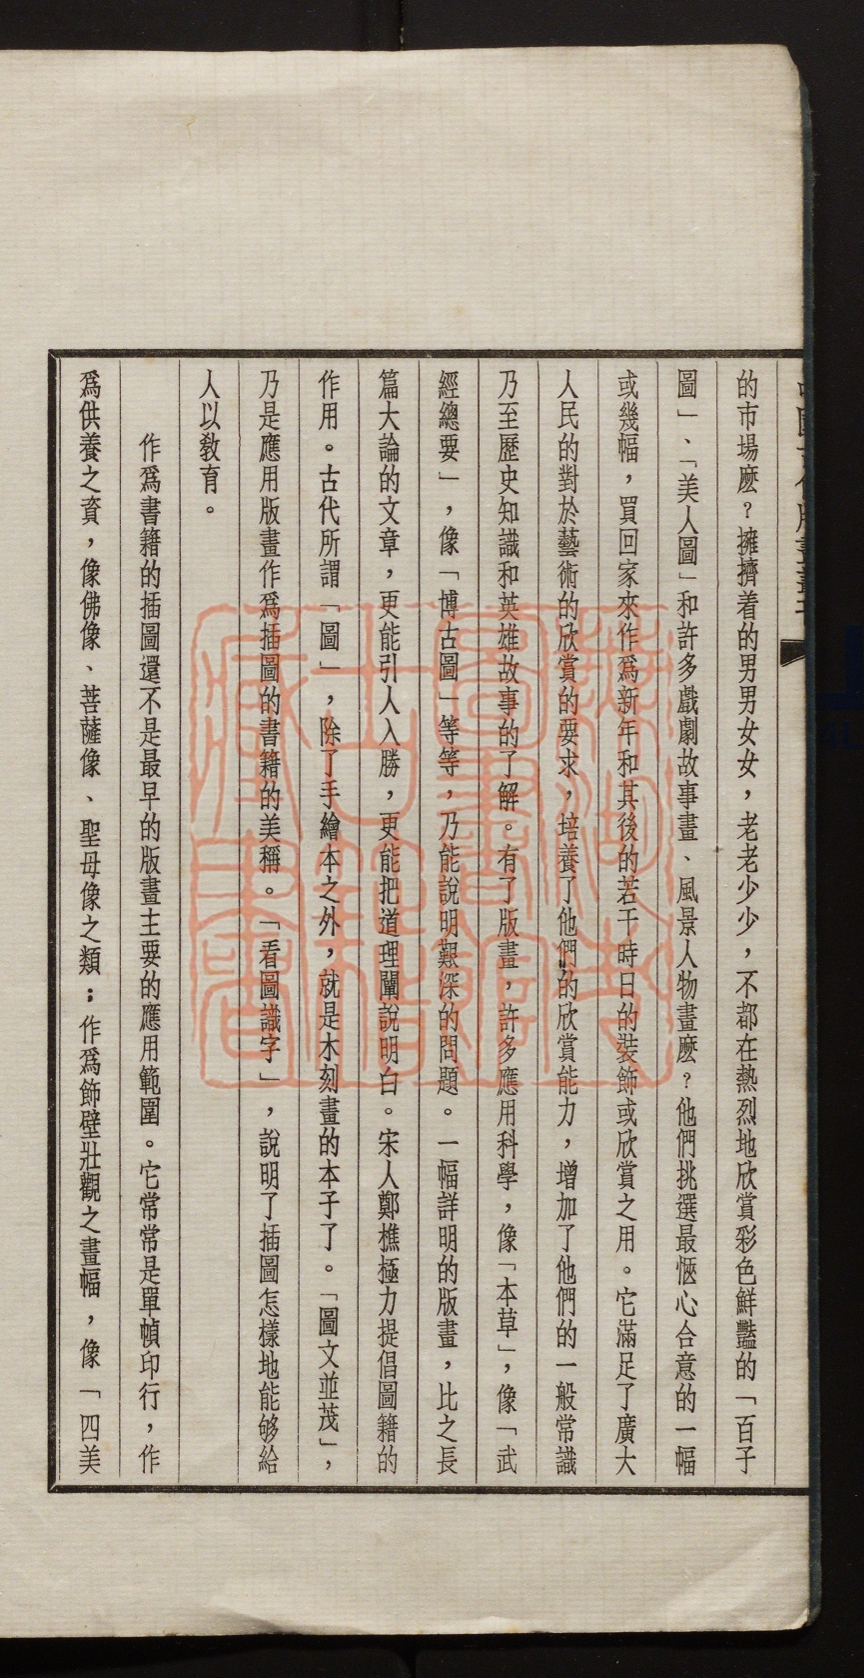 的市場麽？擁擠着的男男女女，老老少少，不都在熱烈地欣賞彩色鮮豔的「百子
圖」、「美人圖」和許多戲劇故事畫、風景人物畫麽？他們挑選最愜心合意的一幅
或幾幅，買回家來作爲新年和其後的若干時日的裝飾或欣賞之用。它滿足了廣大
人民的對於藝術的欣賞的要求，培養了他們的欣賞能力，增加了他們的一般常識
乃至歷史知識和英雄故事的了解。有了版畫，許多應用科學，像「本草」，像「武
經總要」，像「博古圖」等等，乃能說明艱深的問題。一幅詳明的版畫，比之長
篇大論的文章，更能引人入勝，更能把道理闡說明白。宋人鄭樵極力提倡圖籍的
作用。古代所謂「圖」，除了手繪本之外，就是木刻畫的本子了。「圖文並茂」，
乃是應用版畫作爲插圖的書籍的美稱。「看圖識字」，說明了插圖怎樣地能够給
人以教育。
作爲書籍的插圖還不是最早的版畫主要的應用範圍。它常常是單幀印行，作
爲供養之資，像佛像、菩薩像、聖母像之類；作爲飾壁壯觀之畫幅，像「四美